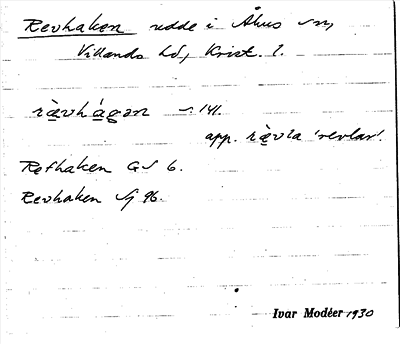 Revhaken udde i Åhus sn,
Villands hd, Krist. l.
rævhágan s. 141.
app. rævla 'revlar'.
Refhaken GS 6.
Revhaken Sj 96.
Ivar Modéer 1930